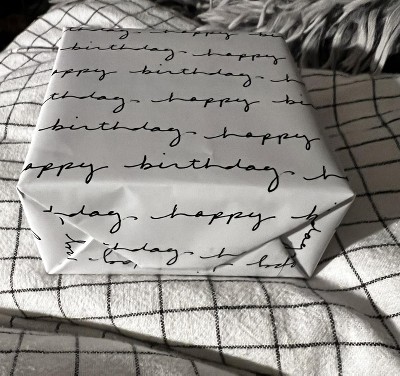 birthday
birthday happy
happy birthday
birthday happy
birthday happy
happy birthday
day happy
thday